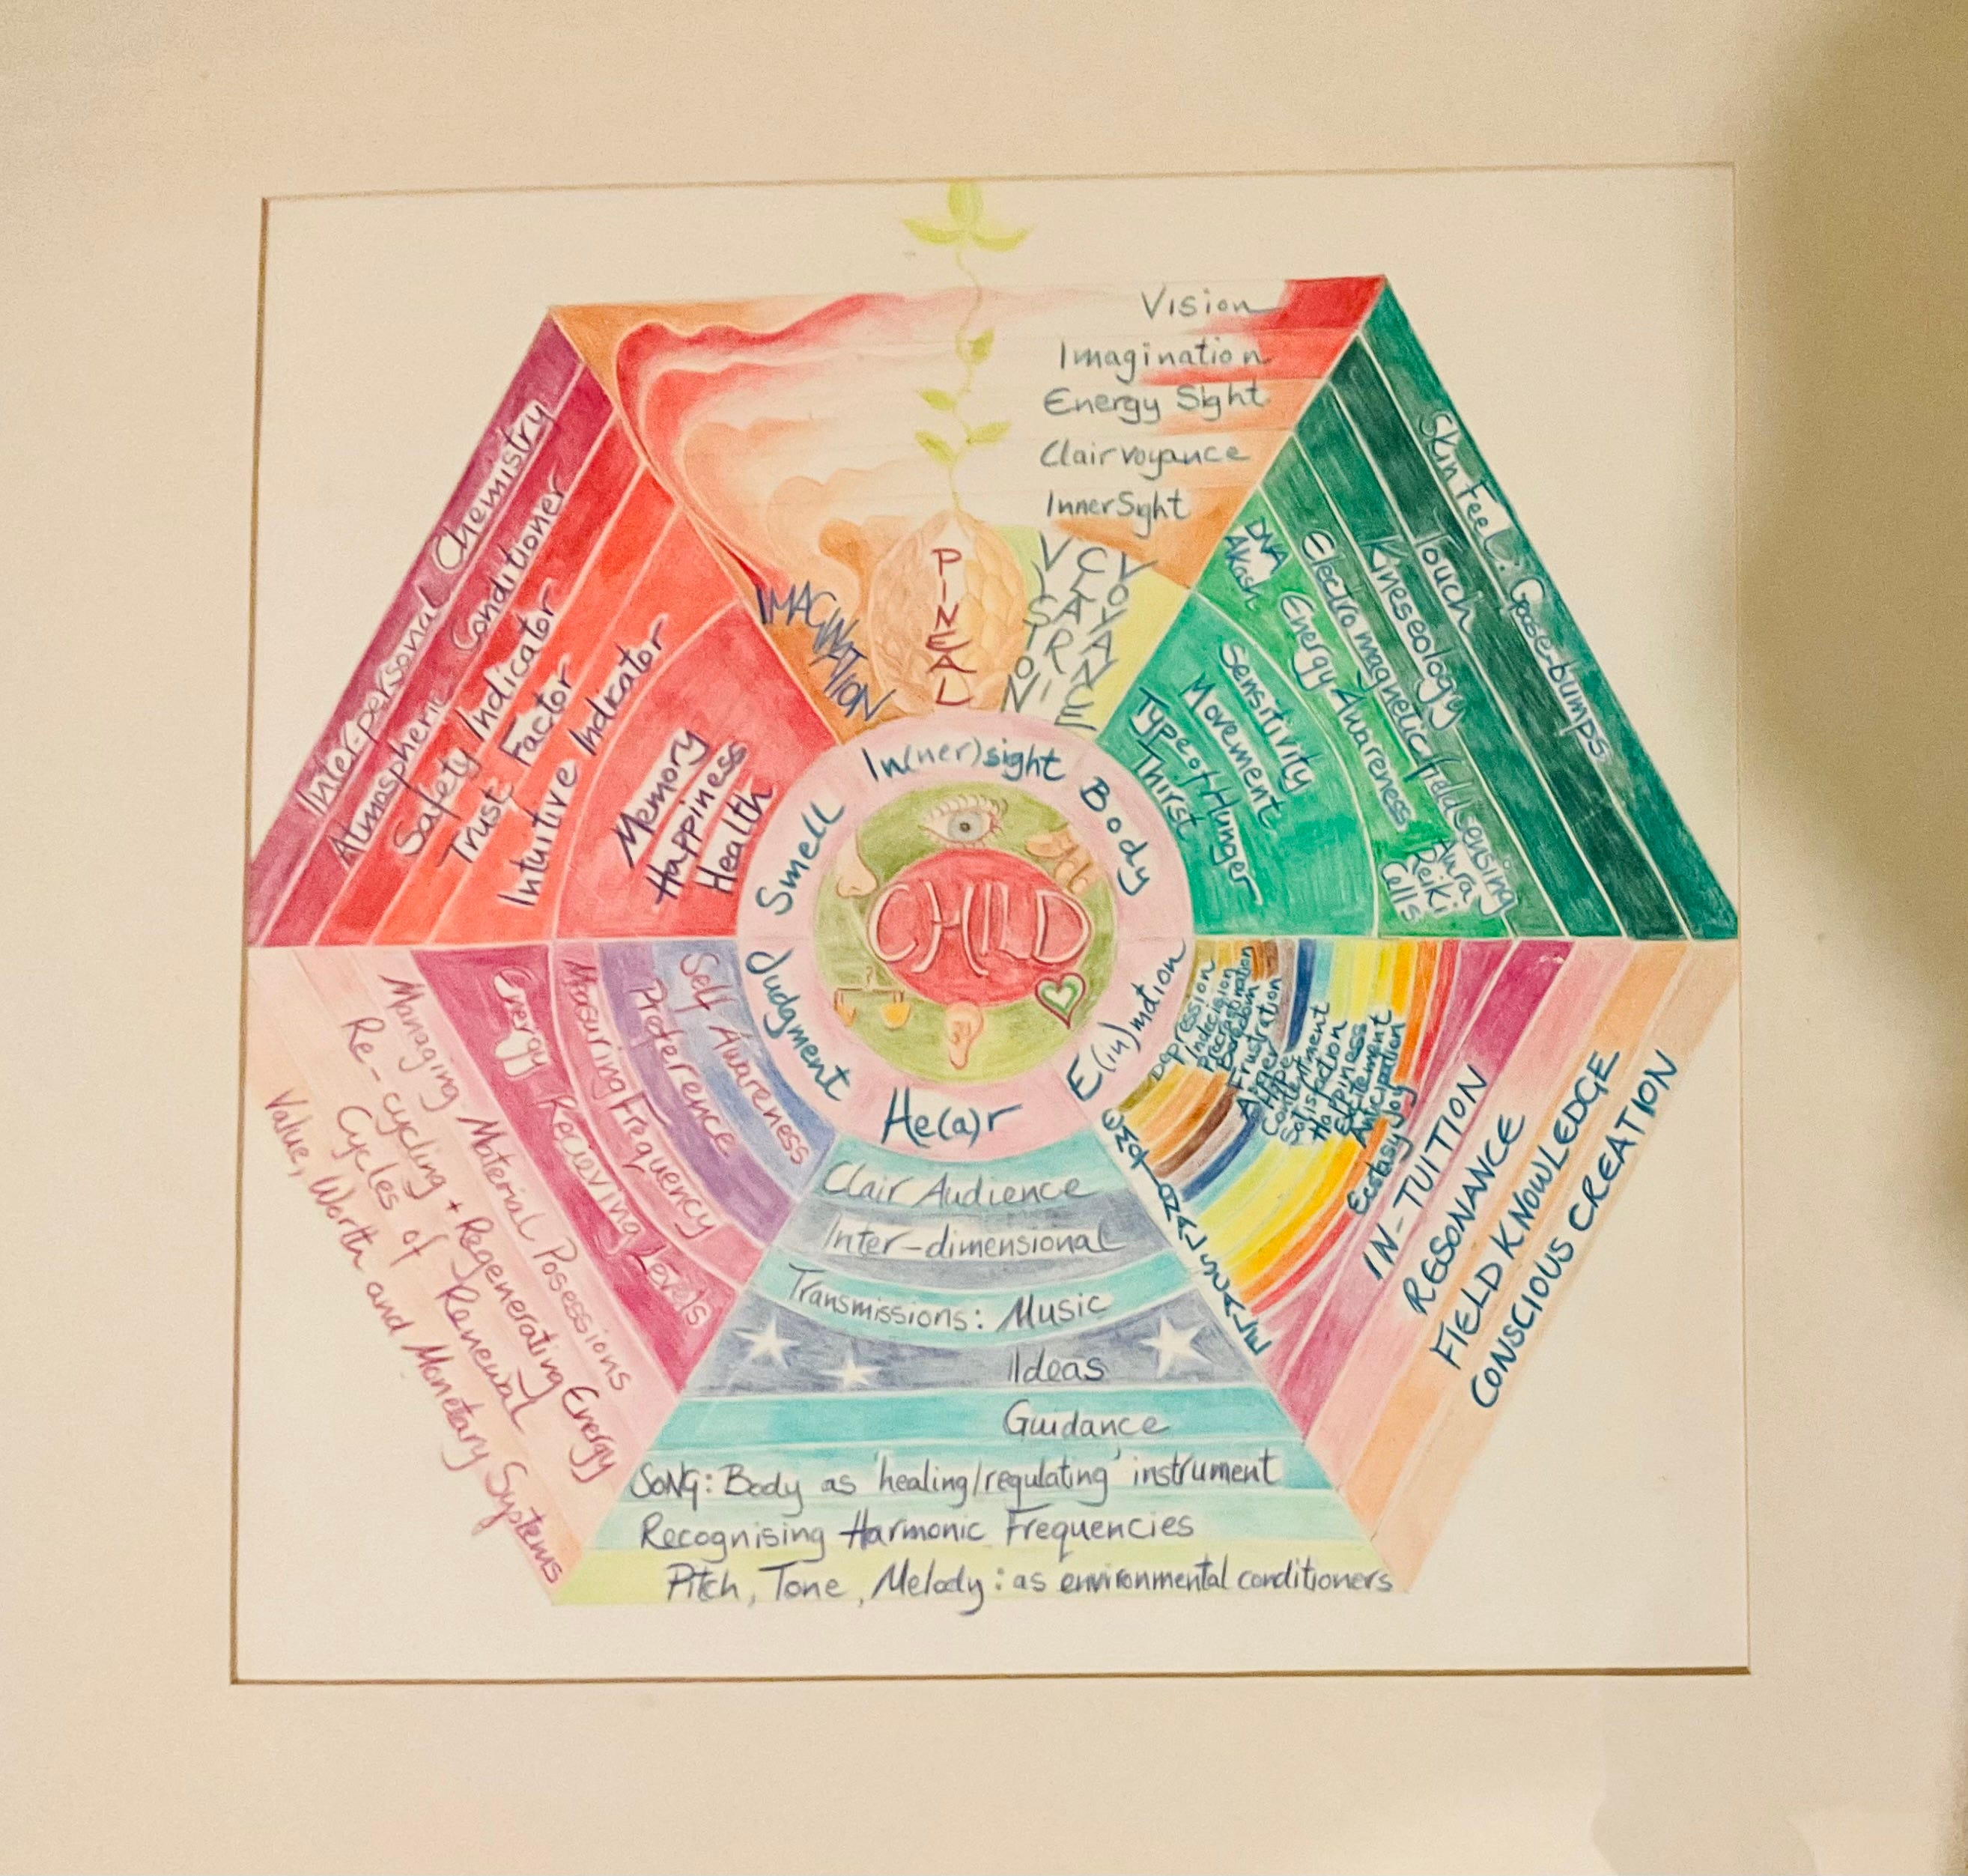 Vision
Imagination
Energy Sight
Clairvoyance
InnerSight
PINEAL
IMAGINATION
VISION
CLAIR
VOYANCE
Skin Feel. Goose-bumps.
Touch
Kineseology
Electro magnetic field sensing
DNA
Akash
Energy Awareness
Aura
Reiki
Cells
Sensitivity
Movement
Type of Hunger
Thirst
Inter-personal Chemistry
Atmospheric Conditioner
Safety Indicator
Trust Factor
Intuitive Indicator
Memory
Happiness
Health
In(ner)sight
Body
E(in)motion
He(a)r
Judgment
Smell
CHILD
?
Depression
Indecision
Procrastination
Boredom
Frustration
Anger
Hope
Contentment
Satisfaction
Happiness
Excitement
Anticipation
Joy
Ecstasy
EMOTIONAL SCALE
IN-TUITION
RESONANCE
FIELD KNOWLEDGE
CONSCIOUS CREATION
Self Awareness
Preference
Measuring Frequency
Energy Recieving Levels
Managing Material Posessions
Re-cycling + Regenerating Energy
Cycles of Renewal
Value, Worth and Monetary Systems
Clair Audience
Inter-dimensional
Transmissions: Music
Ideas
Guidance
SONG: Body as 'healing/regulating' instrument
Recognising Harmonic Frequencies
Pitch, Tone, Melody: as environmental conditioners